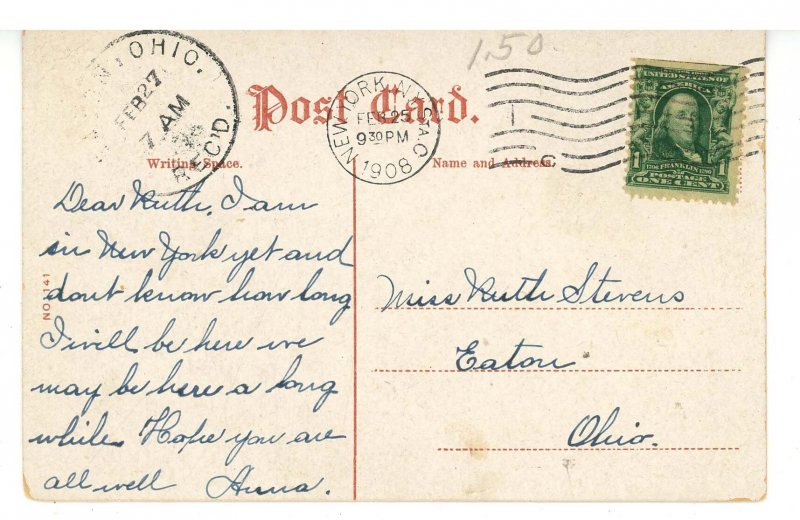 1.50
OHIO.
FEB 27
7 AM
REC'D.
Post Card.
NEW YORK, N.Y. STA. C
FEB 25
9 30 PM
1908
UNITED STATES OF
AMERICA
1 FRANKLIN 1
POSTAGE
ONE CENT
Writing Space.
Name and Address.
Dear Ruth, I am
in New York yet and
dont know how long
I will be here we
may be here a long
while. Hope you are
all well Anna.
NO. 1141
Miss Ruth Stevens
Eaton
Ohio.